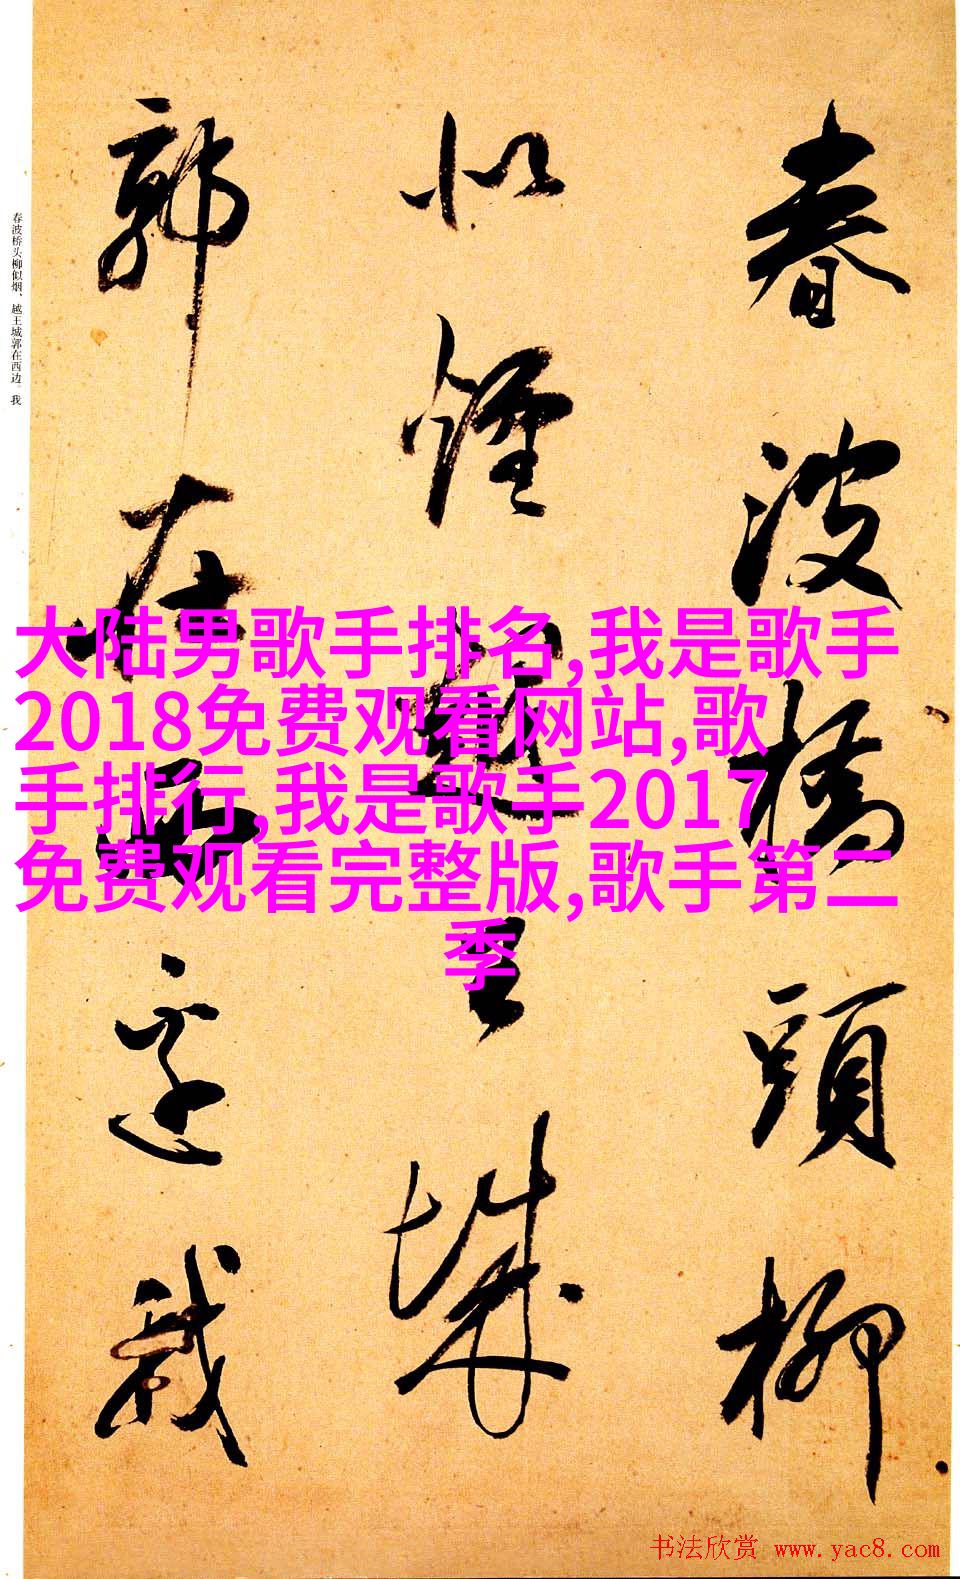 春波橋頭柳
似煙越王城
郭在西邊我
春波桥头柳似烟、越王城郭在西边。我
大陆男歌手排名,我是歌手
2018免费观看网站,歌
手排行,我是歌手2017
免费观看完整版,歌手第二
季
书法欣赏 www.yac8.com